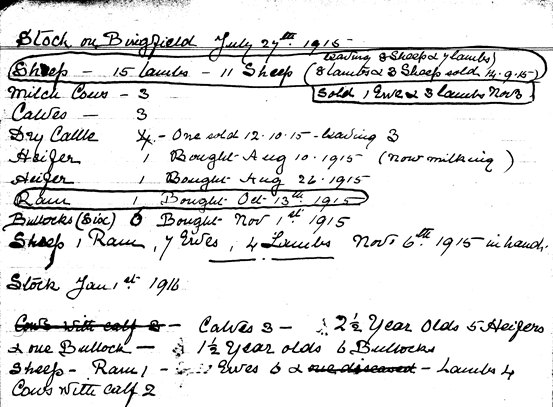 Stock on Bingfield July 27th 1915
Sheep - 15 lambs - 11 Sheep (leaving 8 Sheep & 7 lambs)
(8 lambs & 3 Sheep sold 14.9.15)
Milch Cows - 3 Sold 1 Ewe & 3 lambs Nov 3
Calves - 3
Dry Cattle 4 - One sold 12.10.15 - leaving 3
Heifer 1 Bought Aug 10. 1915 (now milking)
Heifer 1 Bought Aug 26. 1915
Ram 1 Bought Oct 13th 1915
Bullocks (Six) 6 Bought Nov 1st 1915
Sheep 1 Ram, 7 Ewes, 4 Lambs Nov 6th 1915 in hand.
Stock Jan 1st 1916
Cows with calf 2 - Calves 3 - 2½ Year Olds 5 Heifers
& one Bullock - 1½ Year olds 6 Bullocks
Sheep - Ram 1 - Ewes 6 & one diseased - Lambs 4
Cows with calf 2